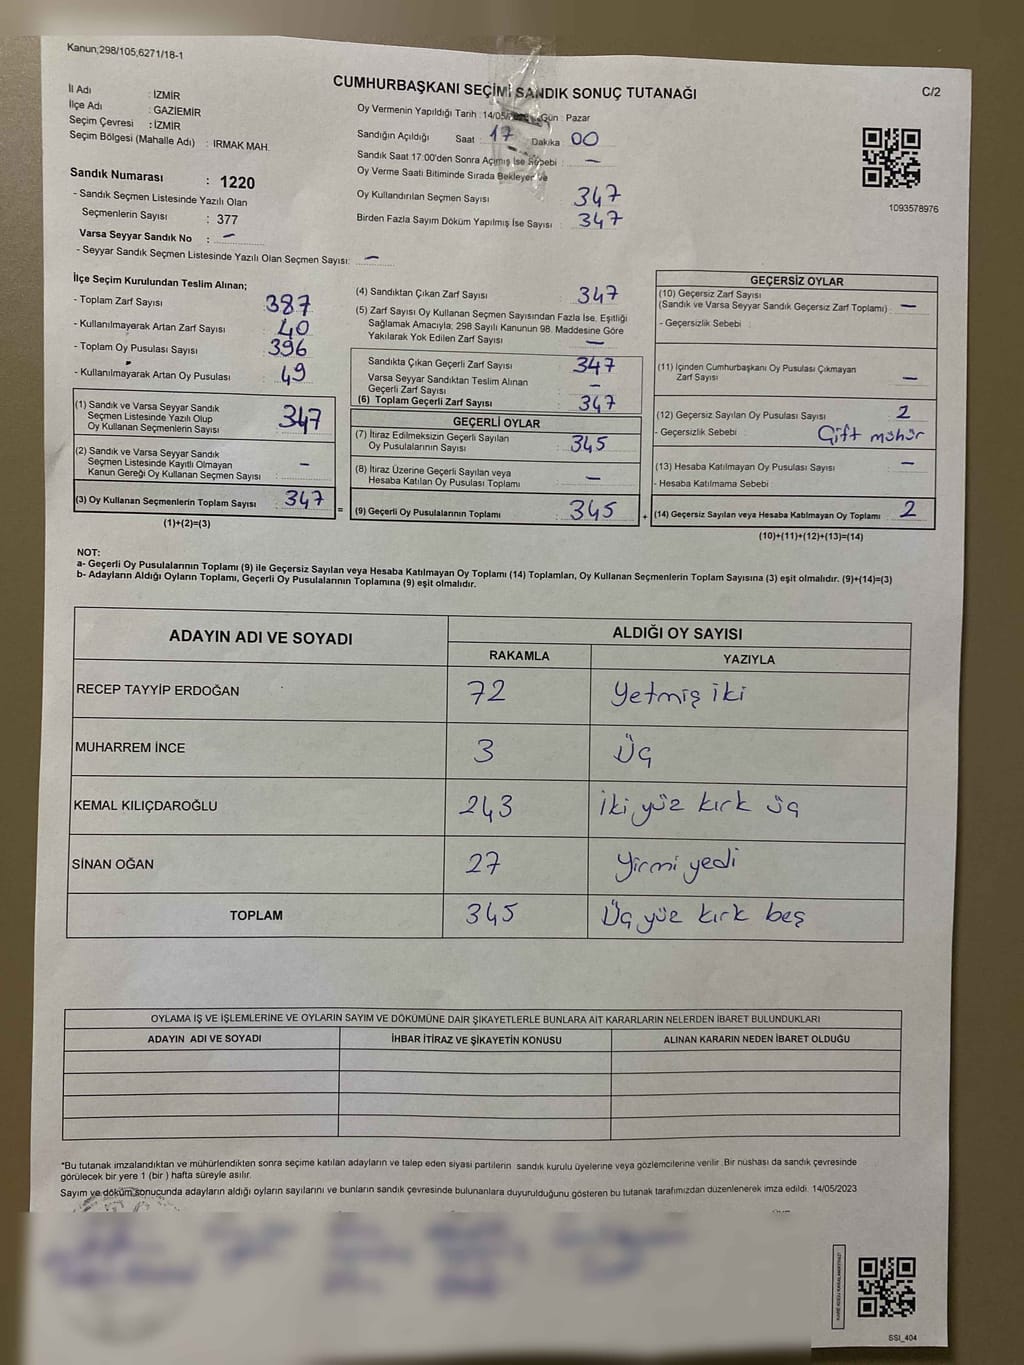 Kanun,298/105,6271/18-1
CUMHURBAŞKANI SEÇİMİ SANDIK SONUÇ TUTANAĞI
C/2
İl Adı : İZMİR
İlçe Adı : GAZİEMİR
Seçim Çevresi : İZMİR
Seçim Bölgesi (Mahalle Adı) : IRMAK MAH.
Sandık Numarası : 1220
- Sandık Seçmen Listesinde Yazılı Olan
Seçmenlerin Sayısı : 377
Varsa Seyyar Sandık No : -
- Seyyar Sandık Seçmen Listesinde Yazılı Olan Seçmen Sayısı: -
Oy Vermenin Yapıldığı Tarih : 14/05/ Gün : Pazar
Sandığın Açıldığı Saat : 17 Dakika 00
Sandık Saat 17:00'den Sonra Açılmış İse Sebebi : -
Oy Verme Saati Bitiminde Sırada Bekleyen ve
Oy Kullandırılan Seçmen Sayısı : 347
Birden Fazla Sayım Döküm Yapılmış İse Sayısı : 347
1093578976
İlçe Seçim Kurulundan Teslim Alınan;
- Toplam Zarf Sayısı : 387
- Kullanılmayarak Artan Zarf Sayısı : 40
- Toplam Oy Pusulası Sayısı : 396
- Kullanılmayarak Artan Oy Pusulası : 49
(1) Sandık ve Varsa Seyyar Sandık
Seçmen Listesinde Yazılı Olup
Oy Kullanan Seçmenlerin Sayısı : 347
(2) Sandık ve Varsa Seyyar Sandık
Seçmen Listesinde Kayıtlı Olmayan
Kanun Gereği Oy Kullanan Seçmen Sayısı : -
(3) Oy Kullanan Seçmenlerin Toplam Sayısı : 347
(1)+(2)=(3)
(4) Sandıktan Çıkan Zarf Sayısı : 347
(5) Zarf Sayısı Oy Kullanan Seçmen Sayısından Fazla İse, Eşitliği
Sağlamak Amacıyla; 298 Sayılı Kanunun 98. Maddesine Göre
Yakılarak Yok Edilen Zarf Sayısı : -
Sandıkta Çıkan Geçerli Zarf Sayısı : 347
Varsa Seyyar Sandıktan Teslim Alınan
Geçerli Zarf Sayısı : -
(6) Toplam Geçerli Zarf Sayısı : 347
GEÇERLİ OYLAR
(7) İtiraz Edilmeksizin Geçerli Sayılan
Oy Pusulalarının Sayısı : 345
(8) İtiraz Üzerine Geçerli Sayılan veya
Hesaba Katılan Oy Pusulası Toplamı : -
= (9) Geçerli Oy Pusulalarının Toplamı : 345
GEÇERSİZ OYLAR
(10) Geçersiz Zarf Sayısı
(Sandık ve Varsa Seyyar Sandık Geçersiz Zarf Toplamı) : -
- Geçersizlik Sebebi :
(11) İçinden Cumhurbaşkanı Oy Pusulası Çıkmayan
Zarf Sayısı : -
(12) Geçersiz Sayılan Oy Pusulası Sayısı : 2
- Geçersizlik Sebebi : Çift mühür
(13) Hesaba Katılmayan Oy Pusulası Sayısı : -
- Hesaba Katılmama Sebebi :
+ (14) Geçersiz Sayılan veya Hesaba Katılmayan Oy Toplamı : 2
(10)+(11)+(12)+(13)=(14)
NOT:
a- Geçerli Oy Pusulalarının Toplamı (9) ile Geçersiz Sayılan veya Hesaba Katılmayan Oy Toplamı (14) Toplamları, Oy Kullanan Seçmenlerin Toplam Sayısına (3) eşit olmalıdır. (9)+(14)=(3)
b- Adayların Aldığı Oyların Toplamı, Geçerli Oy Pusulalarının Toplamına (9) eşit olmalıdır.
ADAYIN ADI VE SOYADI
ALDIĞI OY SAYISI
RAKAMLA YAZIYLA
RECEP TAYYİP ERDOĞAN 72 Yetmiş iki
MUHARREM İNCE 3 Üç
KEMAL KILIÇDAROĞLU 243 İki yüz kırk üç
SİNAN OĞAN 27 Yirmi yedi
TOPLAM 345 Üç yüz kırk beş
OYLAMA İŞ VE İŞLEMLERİNE VE OYLARIN SAYIM VE DÖKÜMÜNE DAİR ŞİKAYETLERLE BUNLARA AİT KARARLARIN NELERDEN İBARET BULUNDUKLARI
ADAYIN ADI VE SOYADI İHBAR İTİRAZ VE ŞİKAYETİN KONUSU ALINAN KARARIN NEDEN İBARET OLDUĞU
*Bu tutanak imzalandıktan ve mühürlendikten sonra seçime katılan adayların ve talep eden siyasi partilerin sandık kurulu üyelerine veya gözlemcilerine verilir. Bir nüshası da sandık çevresinde
görülecek bir yere 1 (bir) hafta süreyle asılır.
Sayım ve döküm sonucunda adayların aldığı oyların sayılarını ve bunların sandık çevresinde bulunanlara duyurulduğunu gösteren bu tutanak tarafımızdan düzenlenerek imza edildi. 14/05/2023
SSI_404